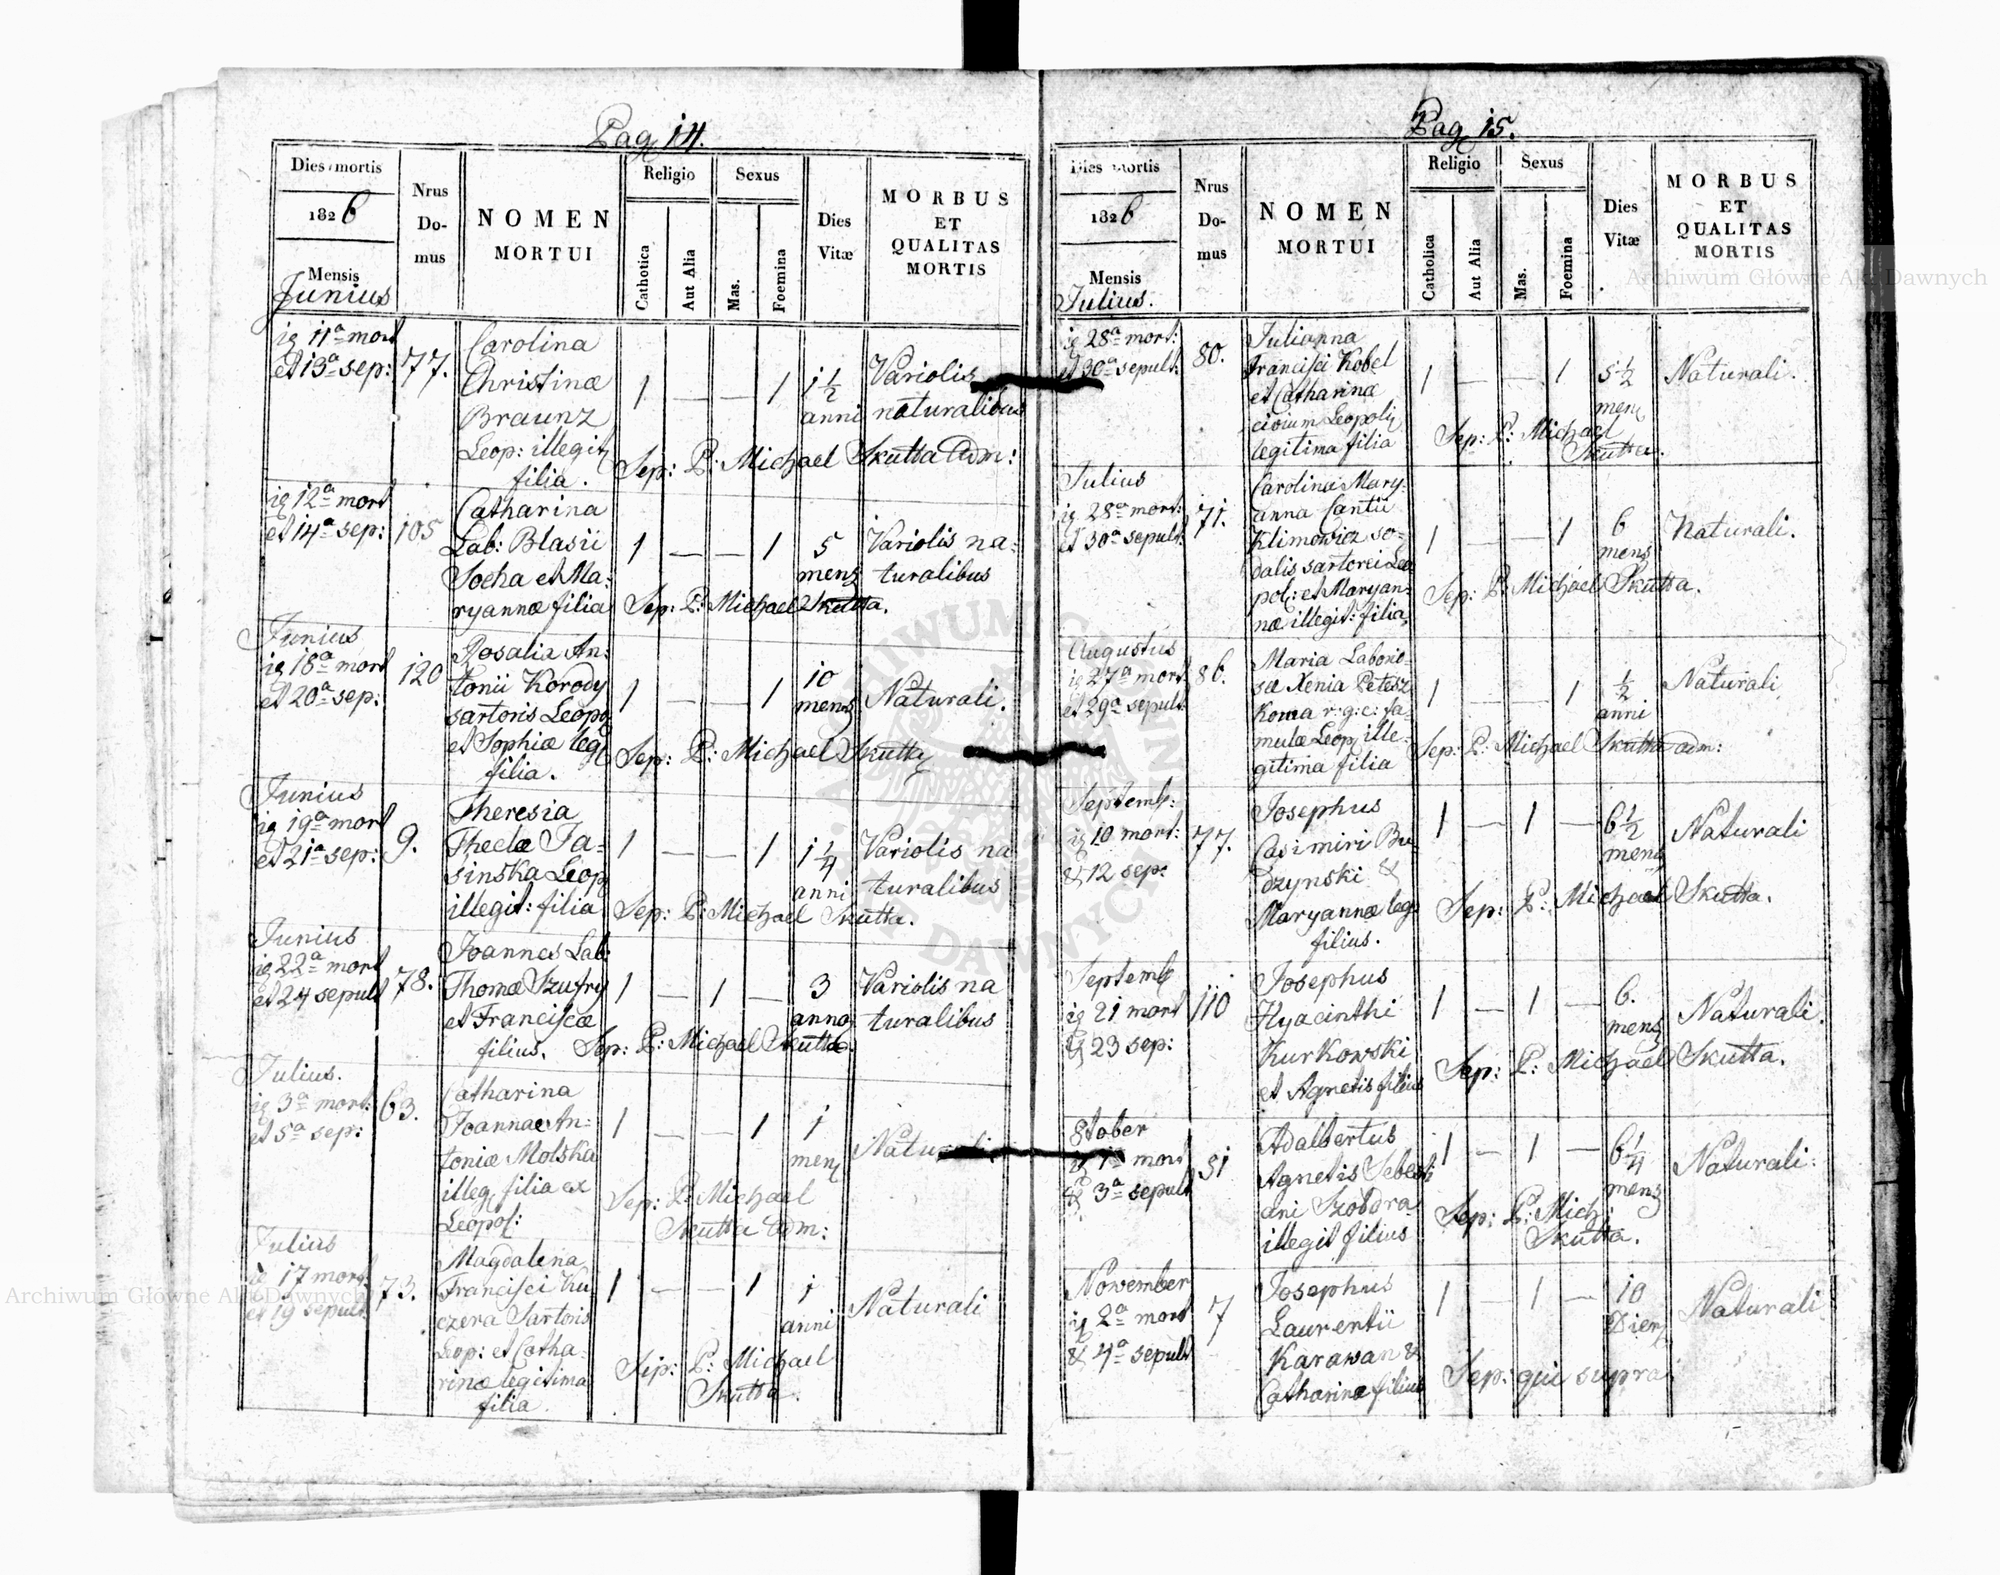 Pag 14.
Dies mortis
1826
Mensis
Junius
Nrus Do-mus
NOMEN
MORTUI
Religio
Catholica
Aut Alia
Sexus
Mas.
Foemina
Dies
Vitæ
MORBUS
ET
QUALITAS
MORTIS
11ª mort
et 13ª sep:
77.
Carolina
Christinæ
Braunz
Leop: illegit
filia.
1 — — 1
1½
anni
Variolis
naturalibus
Sep: P: Michael Skutta adm:
12ª mort
et 14ª sep:
105
Catharina
Lab: Blasii
Socha et Ma:
ryannæ filia
1 — — 1
5
mens
Variolis na:
turalibus
Sep: P: Michael Skutta.
Junius
18ª mort
et 20ª sep:
120
Rosalia An:
tonii Korody
sartoris Leopo
et Sophiæ leg
filia.
1 — — 1
10
mens
Naturali.
Sep: P: Michael Skutta
Junius
19ª mort
et 21ª sep:
9.
Theresia
Theclæ Ja-
sinska Leop
illegit: filia
1 — — 1
1¼
anni
Variolis na
turalibus
Sep: P: Michael Skutta.
Junius
22ª mort
et 24 sepult
78.
Joannes Lab:
Thomæ Szufry
et Franciscæ
filius.
1 — 1 —
3
anno
Variolis na
turalibus
Sep: P: Michael Skutta.
Julius.
3ª mort:
et 5ª sep:
63.
Catharina
Joannæ An:
toniæ Molska
illeg filia ex
Leopol:
1 — — 1
1
men
Naturali
Sep: P: Michael
Skutta adm:
Julius
17 mort:
et 19 sepult:
73.
Magdalena
Francisci Ku
czera Sartoris
Leop: et Catha-
rinæ legitima
filia.
1 — — 1
1
anni
Naturali
Sep: P: Michael
Skutta.
Pag 15.
Dies mortis
1826
Mensis
Julius.
Nrus
Do-
mus
NOMEN
MORTUI
Religio
Catholica
Aut Alia
Sexus
Mas.
Foemina
Dies
Vitæ
MORBUS
ET
QUALITAS
MORTIS
28ª mort:
et 30ª sepult:
80.
Julianna
Francisci Kobel
et Catharinæ
civium Leopoli
legitima filia
1 — — 1
5½
men
Naturali.
Sep: P: Michael
Skutta.
Julius
28ª mort:
et 30ª sepult:
71.
Carolina Mary:
anna Cantii
Klimowicz so-
dalis sartorei Leo
pol: et Maryan-
næ illegit: filia
1 — — 1
6
mens
Naturali.
Sep: P: Michael Skutta.
Augustus
27ª mort
et 29ª sepult
86.
Maria Laborio-
sæ Xenia Petesz
Kowa r: g: c: fa-
mulæ Leop ille-
gitima filia
1 — — 1
½
anni
Naturali
Sep: P: Michael Skutta adm:
Septemb:
10 mort:
& 12 sep:
77.
Josephus
Casimiri Bu
dzynski &
Maryannæ leg
filius.
1 — 1 —
6½
mens
Naturali
Sep: P: Michael Skutta.
Septemb
21 mort
& 23 sep:
110
Josephus
Hyacinthi
Kurkowski
et Agnetis filius
1 — 1 —
6.
mens
Naturali.
Sep: P: Michael Skutta.
8tober
1ª mort
& 3ª sepult
51
Adalbertus
Agnetis Sebasti
ani Szoldra
illegit filius
1 — 1 —
6¼
mens
Naturali:
Sep: P: Mich:
Skutta.
November
2ª mort
& 4ª sepult
7
Josephus
Laurentii
Karawan &
Catharinæ filius
1 — 1 —
10
Dier
Naturali
Sep: qui supra
Archiwum Główne Akt Dawnych
Archiwum Główne Akt Dawnych
ARCHIWUM GŁÓWNE AKT DAWNYCH